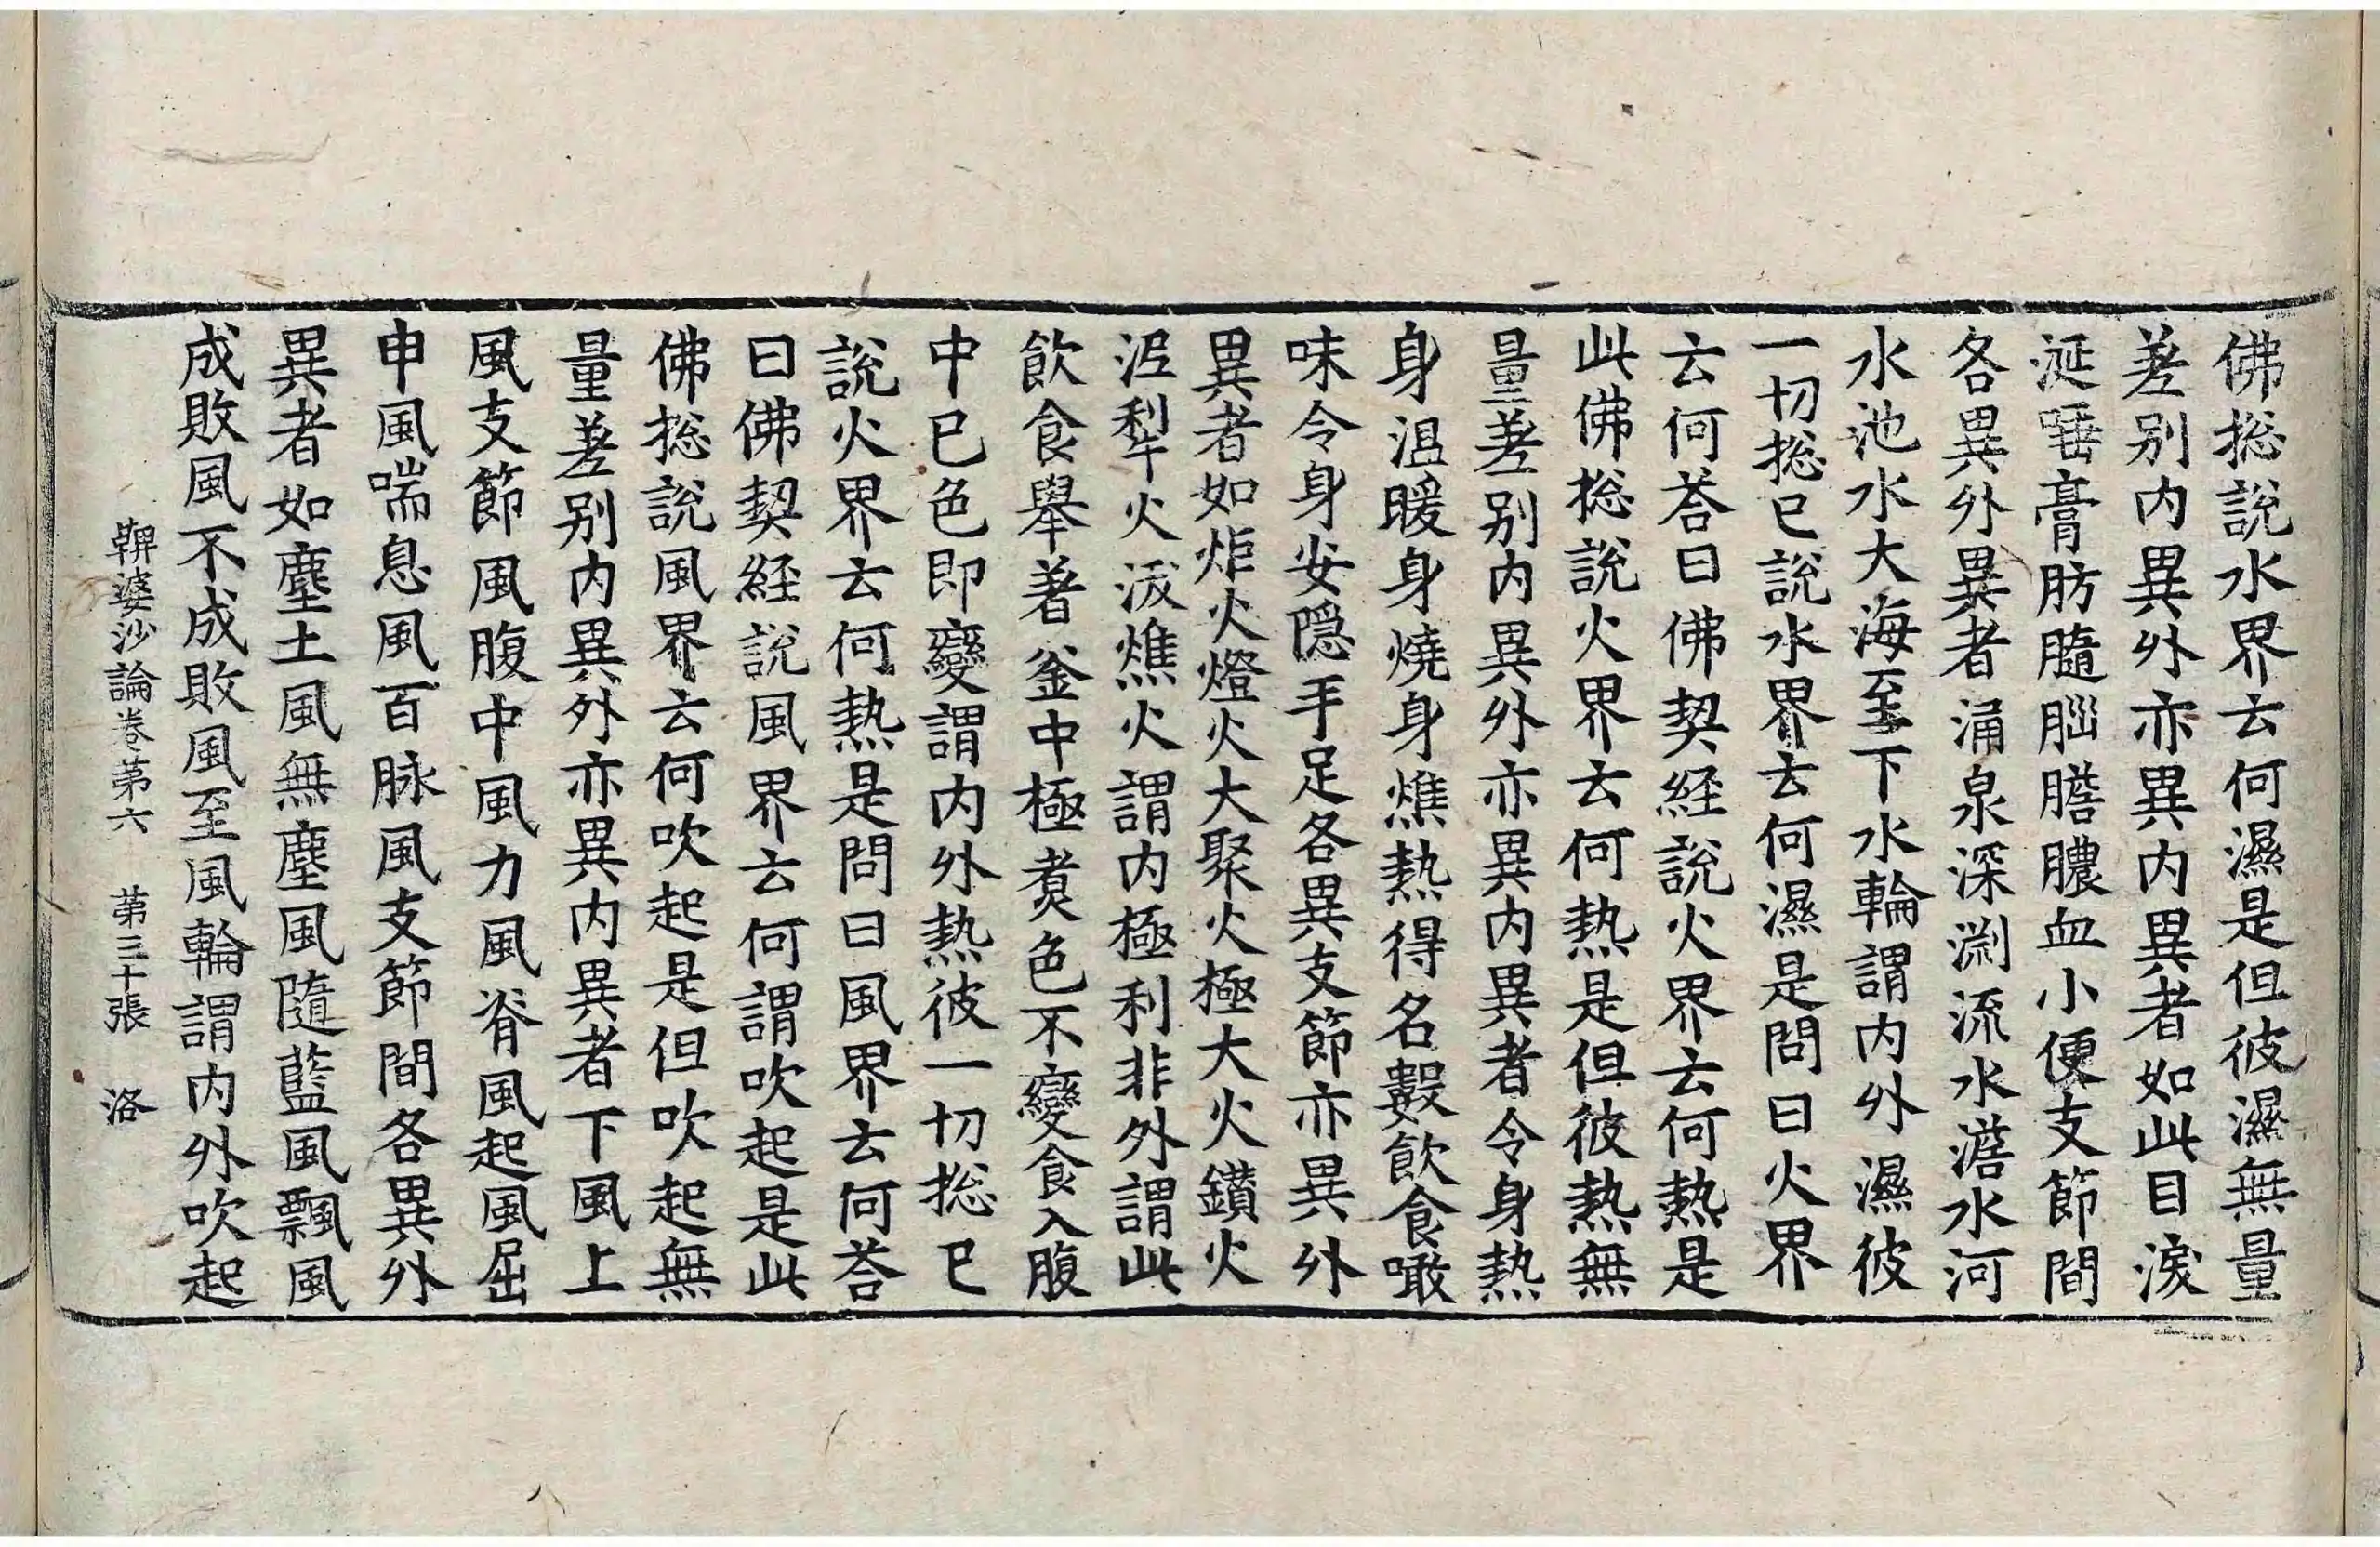 佛捴說水界云何濕是但彼濕無量
差别内異外亦異内異者如此目淚
涎唾膏肪髓腦膽膿血小便支節間
各異外異者涌泉深渊流水澇水河
水池水大海至下水輪謂内外濕彼
一切捴已說水界云何濕是問曰火界
云何荅曰佛契経說火界云何熱是
此佛捴說火界云何熱是但彼熱無
量差别内異外亦異内異者令身熱
身温暖身燒身燋熱得名數飲食噉
味令身安隠手足各異支節亦異外
異者如炬火燈火大聚火極大火鑽火
泥犁火 燋火謂内極利非外謂此
飲食舉著釜中極煑色不變食入腹
中已色即變謂内外熱彼一切捴已
說火界云何熱是問曰風界云何荅
曰佛契経說風界云何謂吹起是此
佛捴說風界云何吹起是但吹起無
量差别内異外亦異内異者下風上
風支節風腹中風力風脊風起風屈
申風喘息風百脉風支節間各異外
異者如塵土風無塵風隨藍風飄風
成敗風不成敗風至風輪謂内外吹起
鞞婆沙論卷苐六 苐三十張 洛